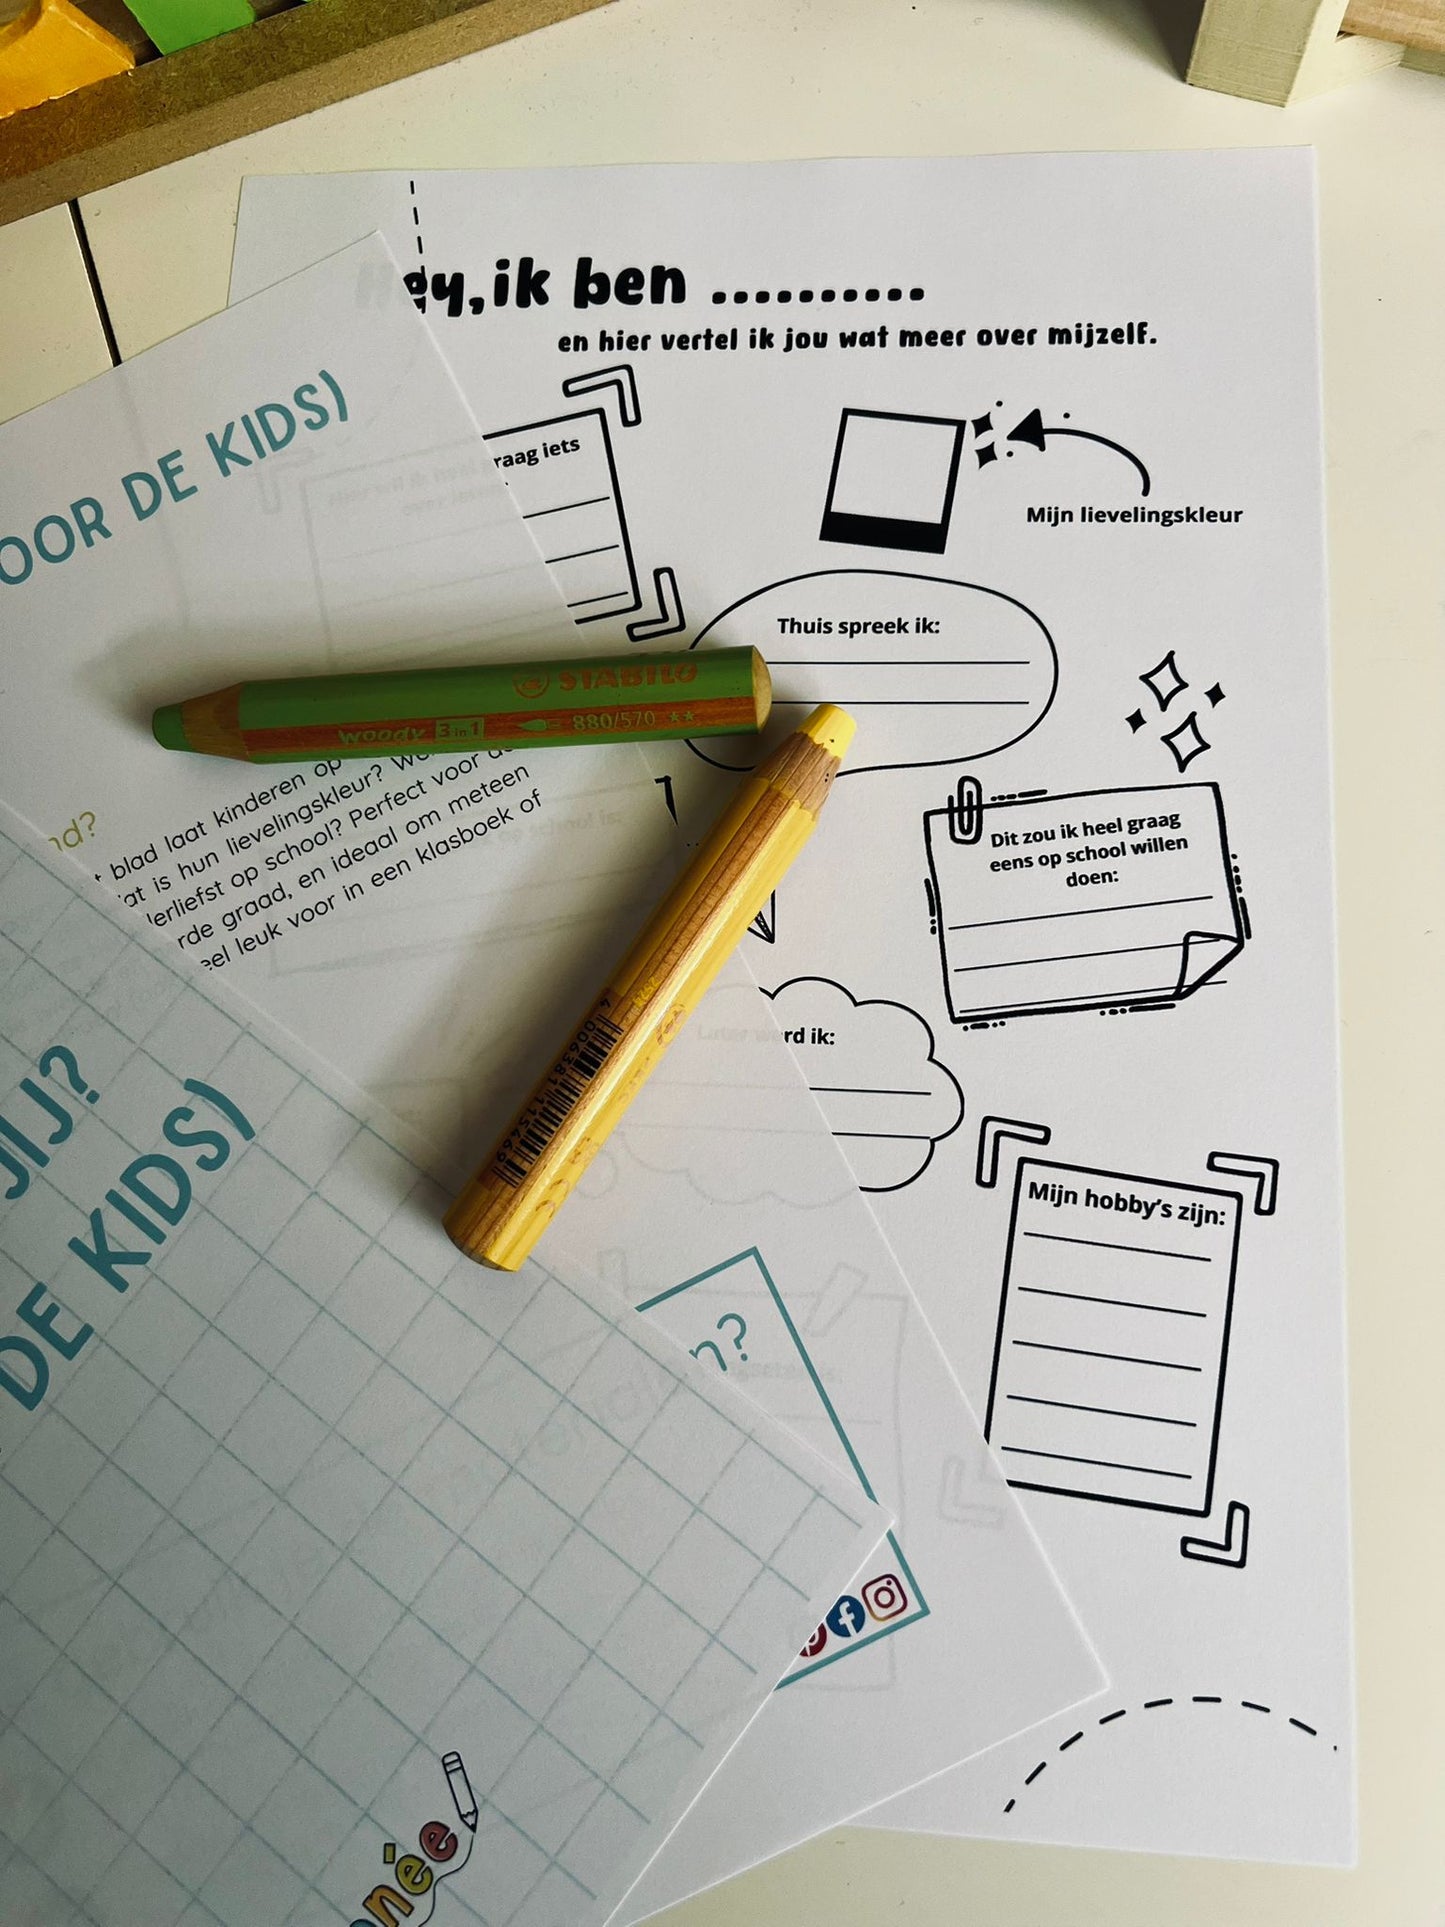 Hey, ik ben ..........
en hier vertel ik jou wat meer over mijzelf.
raag iets
Mijn lievelingskleur
Thuis spreek ik:
Dit zou ik heel graag
eens op school willen
doen:
Later word ik:
Mijn hobby's zijn:
OOR DE KIDS)
nd?
blad laat kinderen op
at is hun lievelingskleur?
lerliefst op school? Perfect voor de
rde graad, en ideaal om meteen
eel leuk voor in een klasboek of
n?
JIJ?
DE KIDS)
née
STABILO
woody 3 in 1 880/570 **
4 006381 115469